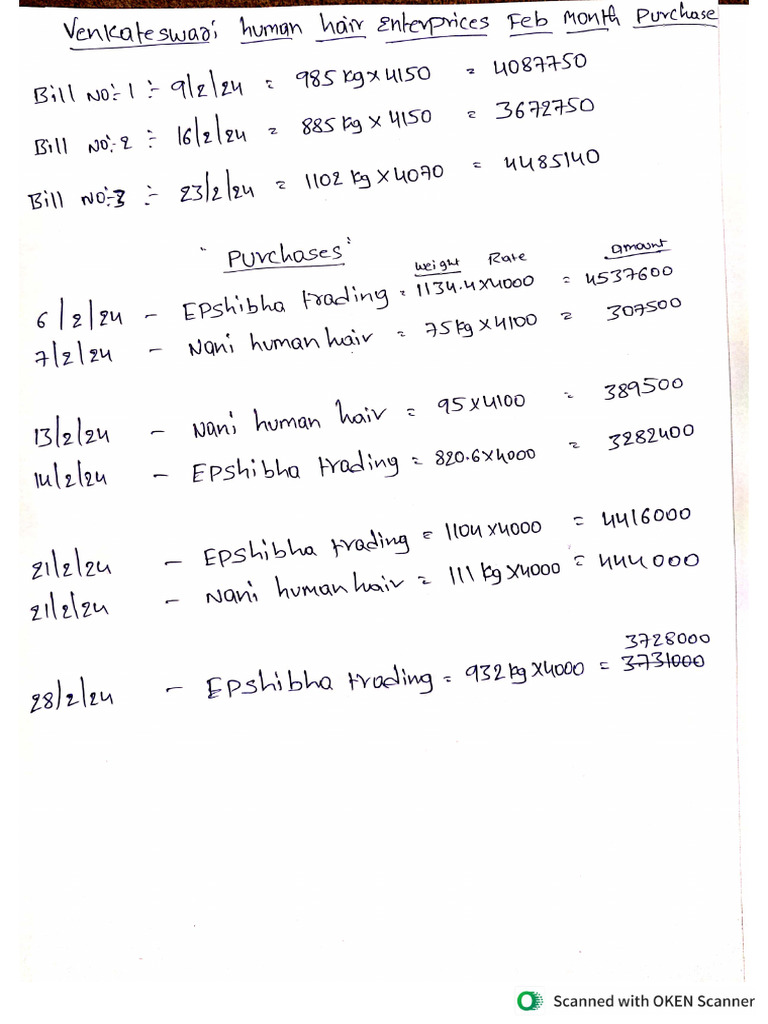 Venkateswari human hair Enterprices Feb Month Purchase
Bill No:-1 :- 9/2/24 = 985 kg x 4150 = 4087750
Bill No:-2 :- 16/2/24 = 885 kg x 4150 = 3672750
Bill No:-3 :- 23/2/24 = 1102 kg x 4070 = 4485140
"Purchases" weight Rate amount
6/2/24 - EPshibha trading = 1134.4x4000 = 4537600
7/2/24 - Nani human hair = 75kg x 4100 = 307500
13/2/24 - Nani human hair = 95 x 4100 = 389500
14/2/24 - EPshibha trading = 820.6x4000 = 3282400
21/2/24 - EPshibha trading = 1104 x 4000 = 4416000
21/2/24 - Nani human hair = 111 kg x 4000 = 444000
3728000
28/2/24 - EPshibha trading = 932 kg x 4000 = 3731000
Scanned with OKEN Scanner